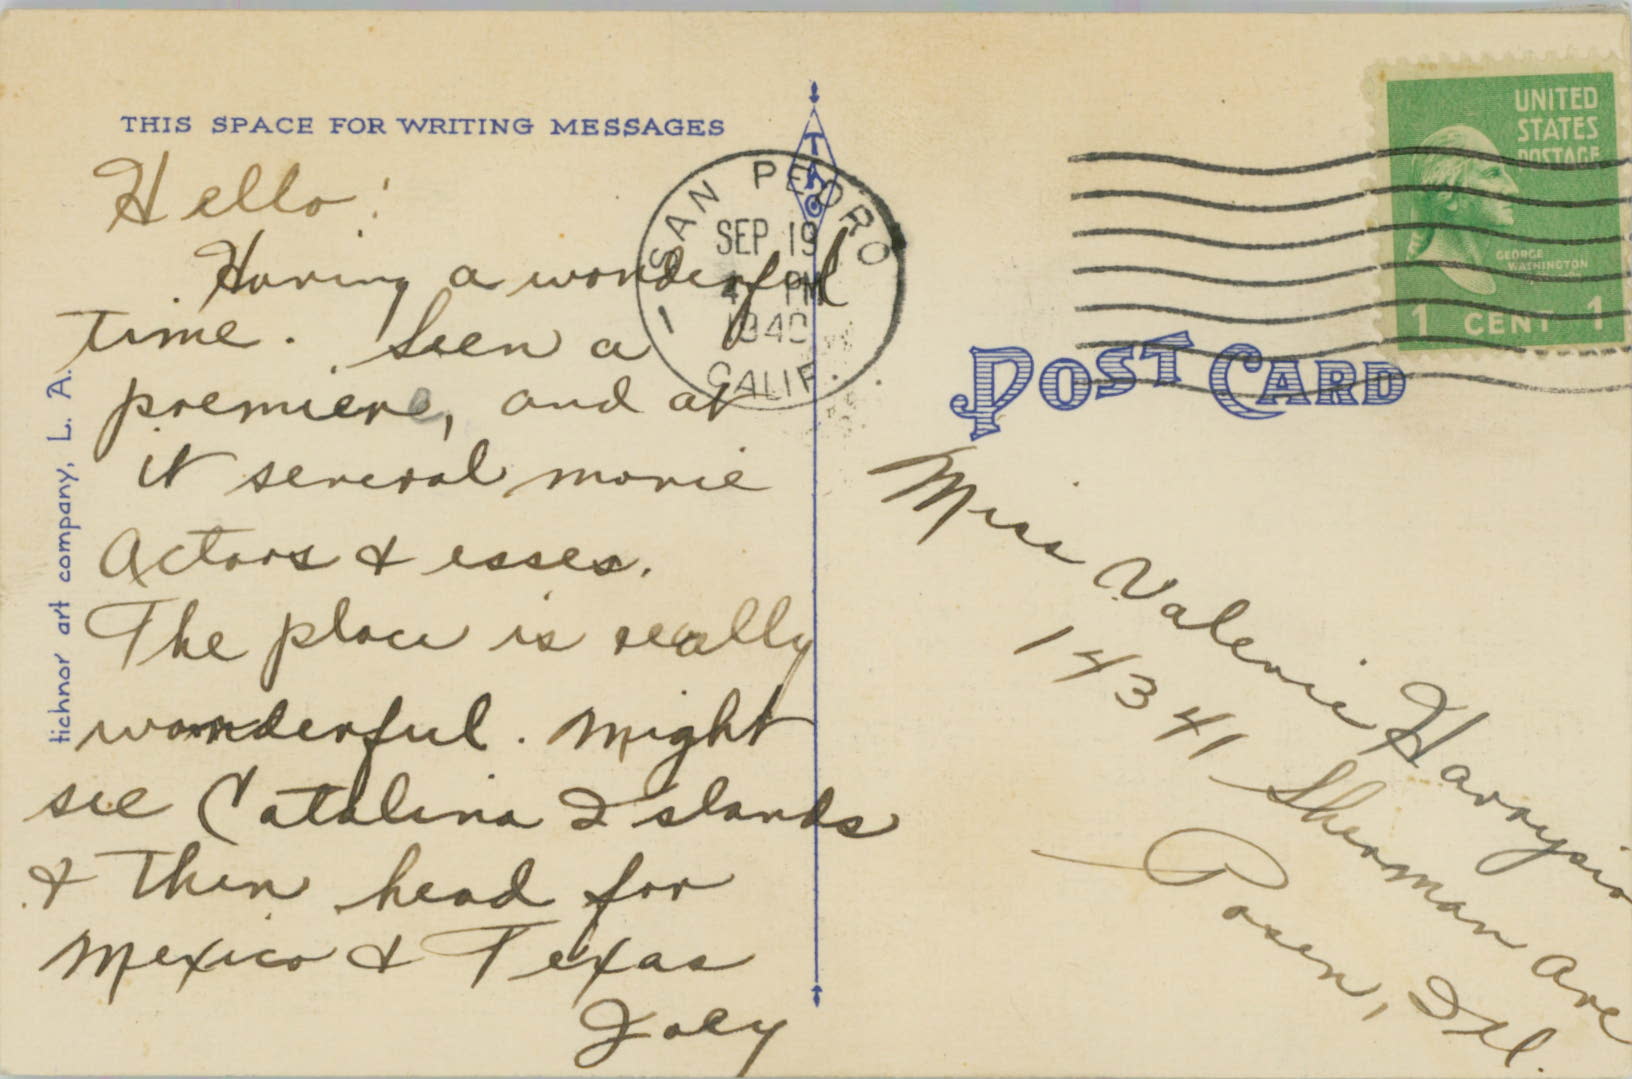 THIS SPACE FOR WRITING MESSAGES
Hello!
Having a wonderful
time. Seen a
premiere, and at
it several movie
actors & esses.
The place is really
wonderful. Might
see Catalina Islands
& then head for
Mexico & Texas
Joey
tichnor art company, L. A.
SAN PEDRO
SEP 19
PM
1940
CALIF.
UNITED
STATES
POSTAGE
GEORGE
WASHINGTON
1 CENT 1
POST CARD
Miss Valerie
14341 Sherman Ave
Posen, Ill.